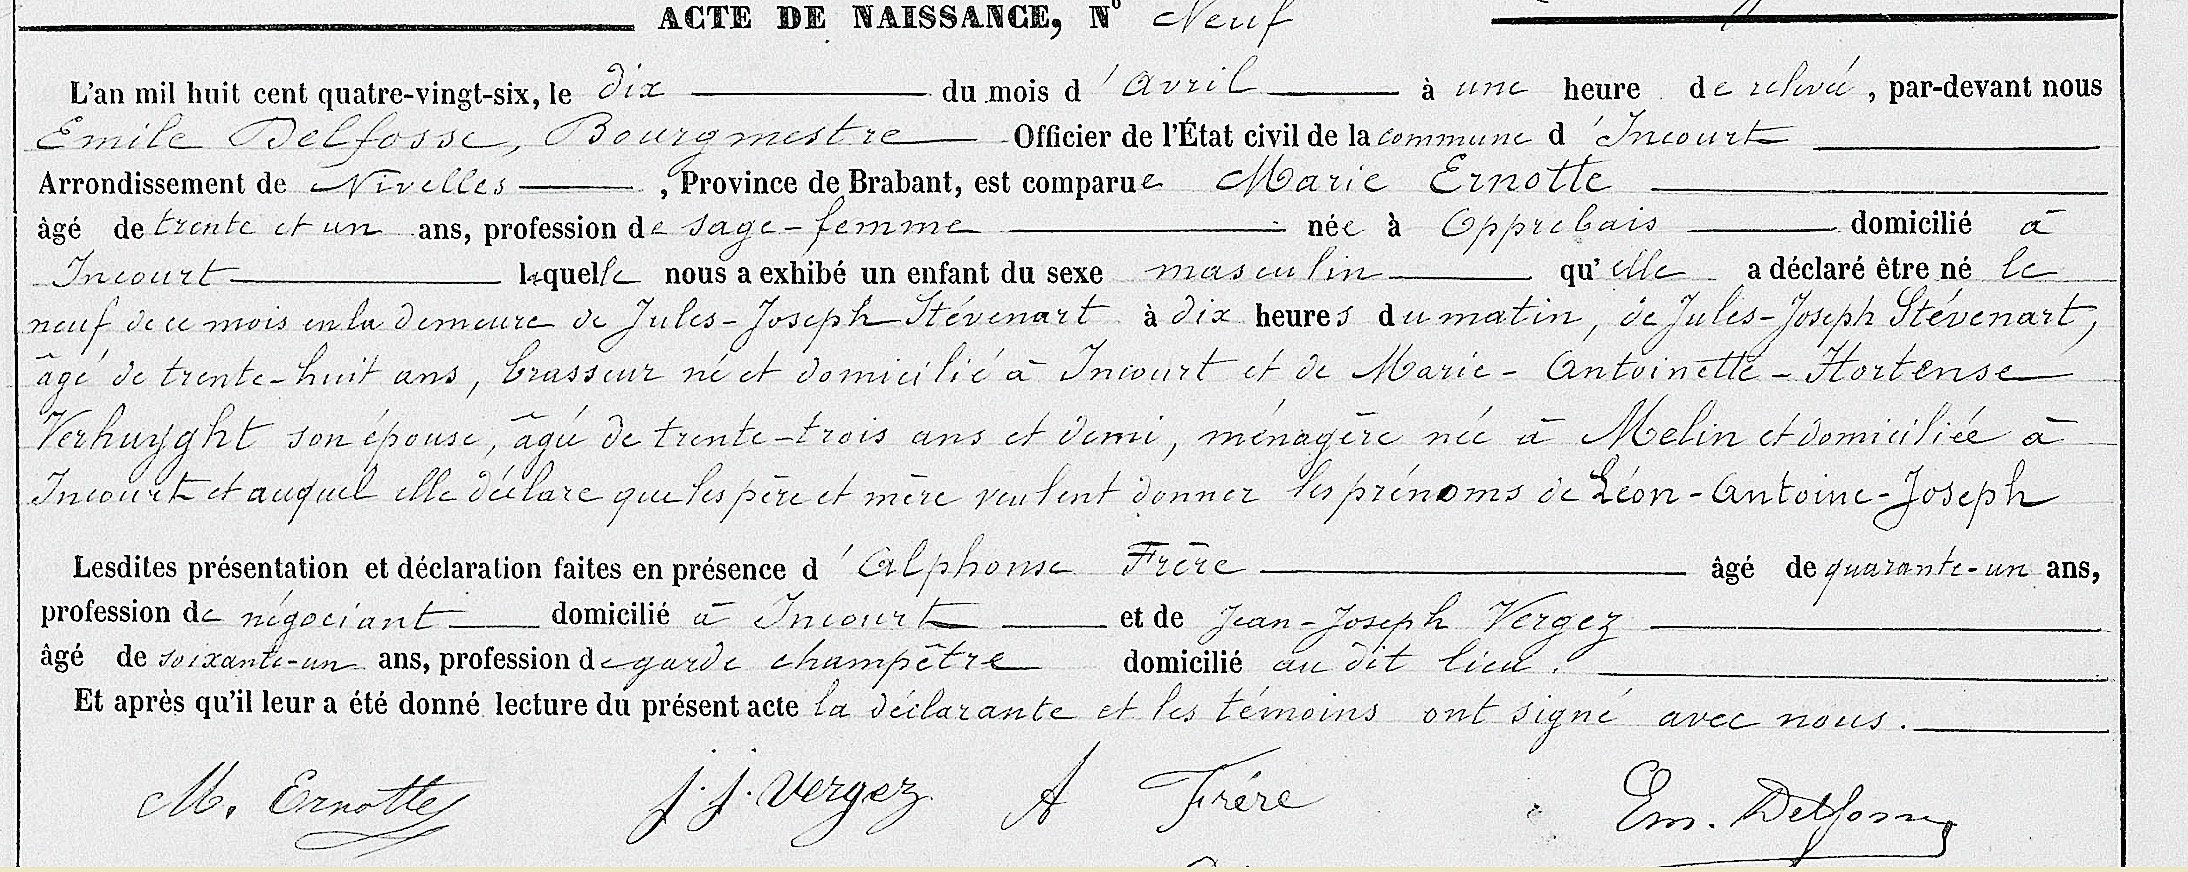 ACTE DE NAISSANCE, Nº Neuf
L'an mil huit cent quatre-vingt-six, le dix du mois d'Avril à une heure de relevée, par-devant nous
Emile Delfosse, Bourgmestre Officier de l'État civil de la commune d'Incourt
Arrondissement de Nivelles, Province de Brabant, est comparue Marie Ernotte
âgé de trente et un ans, profession de sage-femme née à Opprebais domicilié à
Incourt laquelle nous a exhibé un enfant du sexe masculin qu'elle a déclaré être né le
neuf de ce mois en la demeure de Jules-Joseph Stévenart à dix heures du matin, de Jules-Joseph Stévenart,
âgé de trente-huit ans, brasseur né et domicilié à Incourt et de Marie-Antoinette-Hortense
Verhuyght son épouse, âgée de trente-trois ans et demi, ménagère née à Melin et domiciliée à
Incourt et auquel elle déclare que les père et mère veulent donner les prénoms de Léon-Antoine-Joseph
Lesdites présentation et déclaration faites en présence d'Alphonse Frère âgé de quarante-un ans,
profession de négociant domicilié à Incourt et de Jean-Joseph Vergez
âgé de soixante-un ans, profession de garde champêtre domicilié au dit lieu.
Et après qu'il leur a été donné lecture du présent acte la déclarante et les témoins ont signé avec nous.
M. Ernotte J. J. Vergez A Frére Em. Delfosse